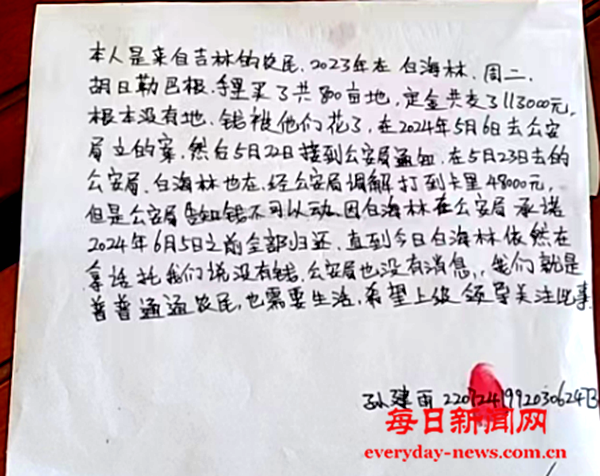 本人是来自吉林的农民、2023年在 白海林、周二、
胡日勒巴根、手里买了共800亩地,定金共支了113000元,
根本没有地、钱被他们花了、在2024年5月6日去公安
局立的案,然后5月22日接到公安局通知、在5月23日去的
公安局、白海林也在、经公安局调解打到卡里48000元,
但是公安局告知钱不可以动、因白海林在公安局承诺
2024年6月5日之前全部归还、直到今日白海林依然在
拿话托我们说没有钱、公安局也没有消息,我们就是
普普通通农民、也需要生活、希望上级领导关注此事
孙建
每日新闻网
everyday-news.com.cn